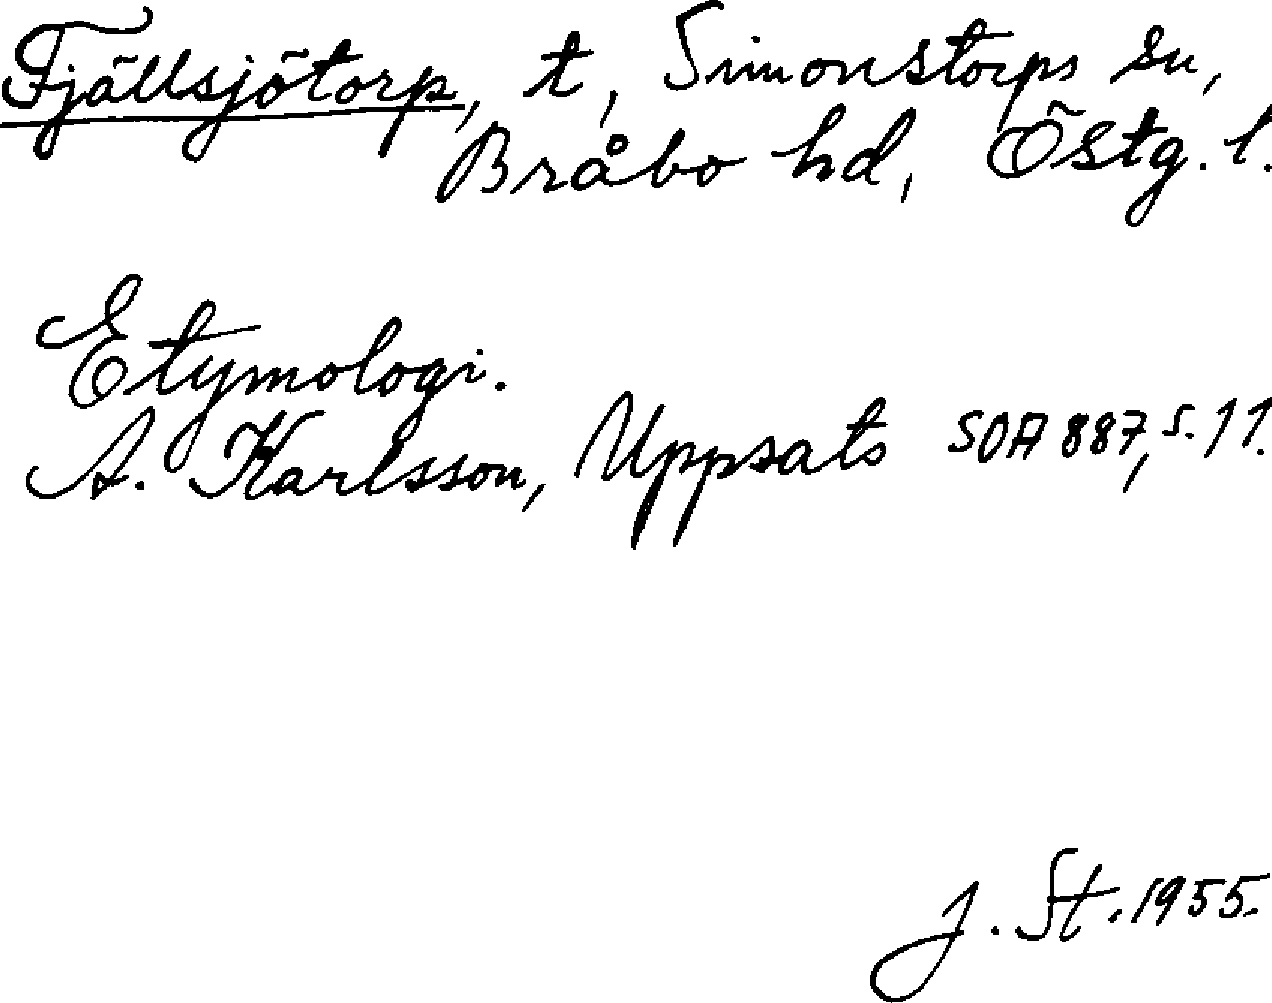 Fjällsjötorp, t, Simonstorps sn,
Bråbo hd, Östg. l.
Etymologi.
A. Karlsson, Uppsats SOA 887, s. 11.
J. St. 1955.